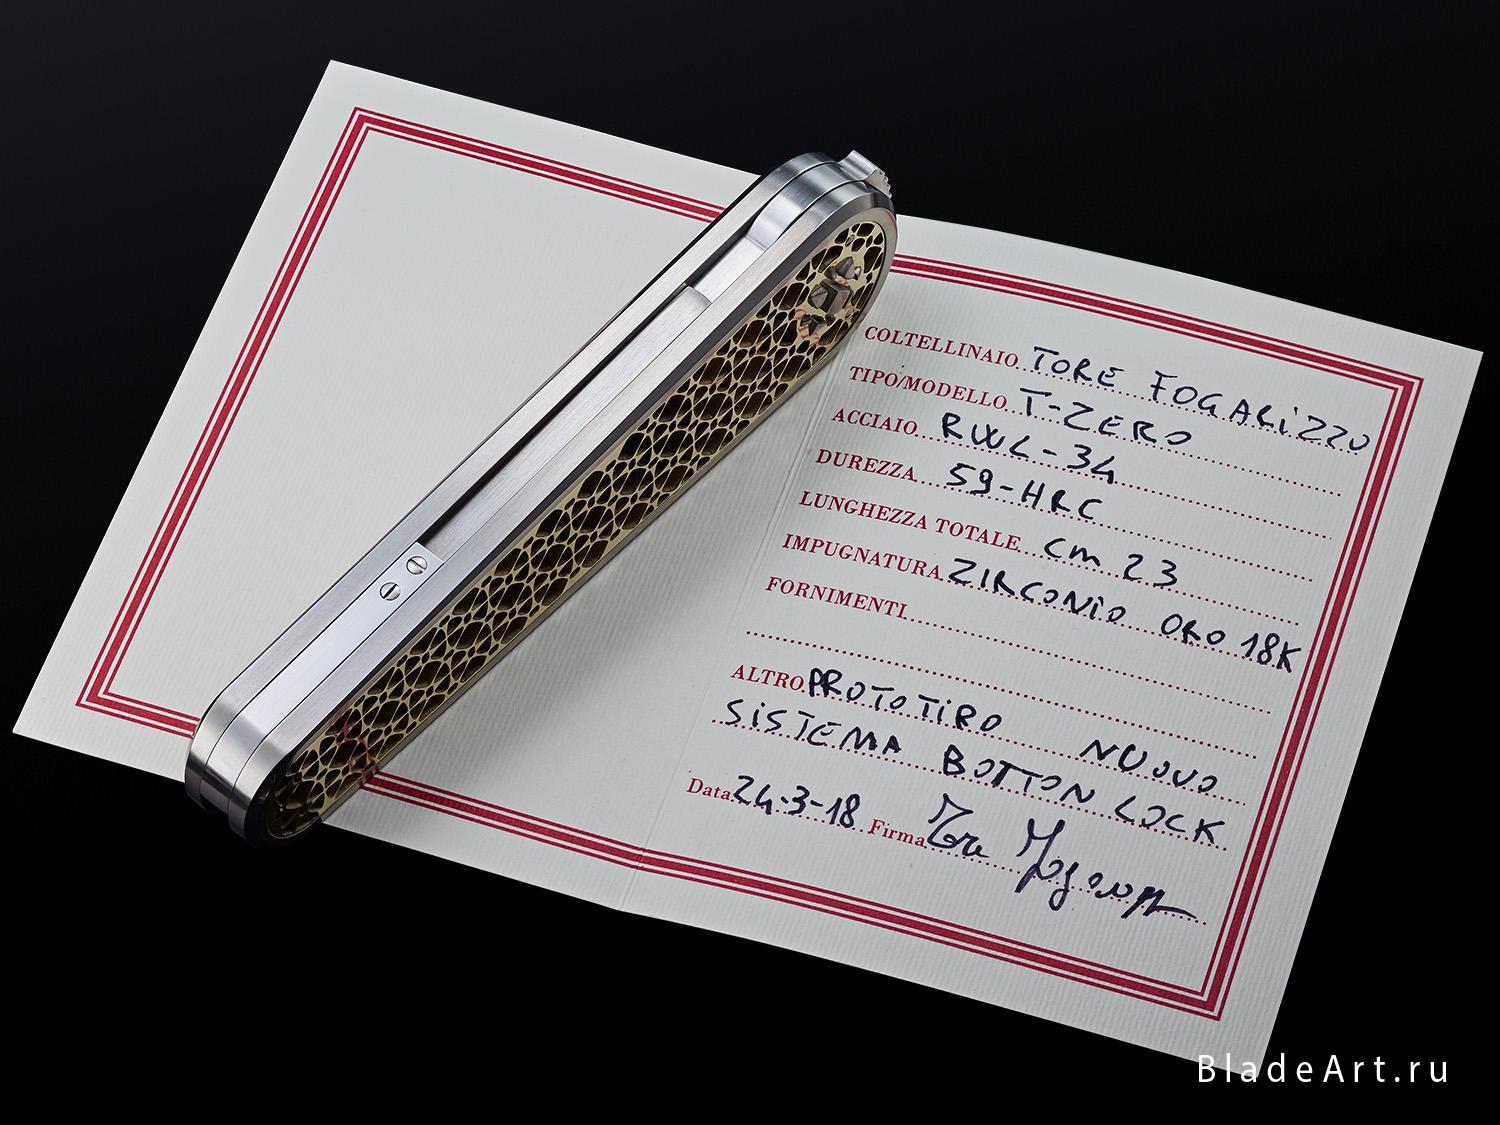 COLTELLINAIO TORE FOGARIZZU
TIPO/MODELLO T-ZERO
ACCIAIO RWL-34
DUREZZA 59-HRC
LUNGHEZZA TOTALE cm 23
IMPUGNATURA ZIRCONIO ORO 18K
FORNIMENTI
ALTRO PROTOTIRO NUOVO
SISTEMA BOTTON LOCK
Data 24-3-18 Firma Tore
BladeArt.ru